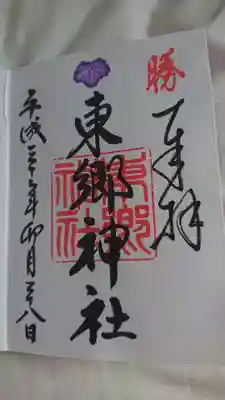 勝
奉拝
東郷神社
東郷神社
平成三十年卯月二八日